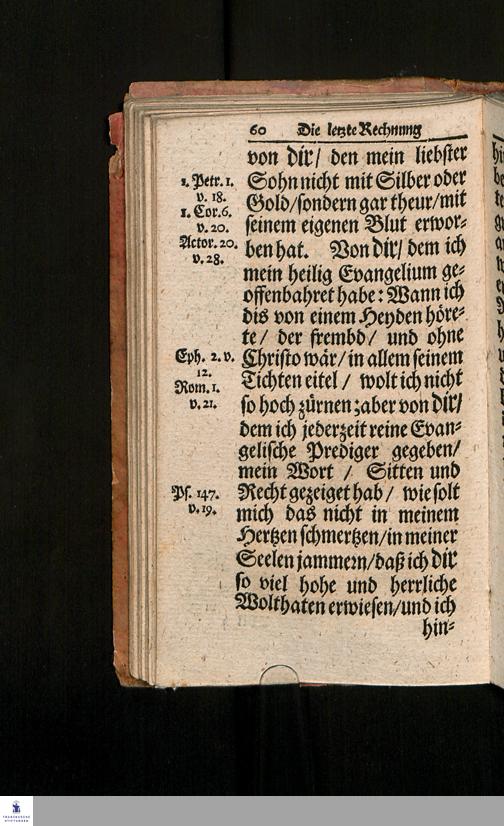 60 Die letzte Rechnung
von dir/ den mein liebster
1. Petr. 1. Sohn nicht mit Silber oder
v. 18. Gold/sondern gar theur/mit
1. Cor. 6.
v. 20. seinem eigenen Blut erwor-
Actor. 20. ben hat. Von dir/ dem ich
v. 28.
mein heilig Evangelium ge-
offenbahret habe: Wann ich
dis von einem Heyden höre-
te/ der frembd/ und ohne
Eph. 2. v. Christo wär/ in allem seinem
12.
Tichten eitel/ wolt ich nicht
Rom. 1.
v. 21. so hoch zürnen; aber von dir/
dem ich jederzeit reine Evan-
gelische Prediger gegeben/
mein Wort/ Sitten und
Ps. 147. Recht gezeiget hab/ wie solt
v. 19. mich das nicht in meinem
Hertzen schmertzen/in meiner
Seelen jammern/daß ich dir
so viel hohe und herrliche
Wolthaten erwiesen/und ich
hin-
FRANCKESCHE
STIFTUNGEN